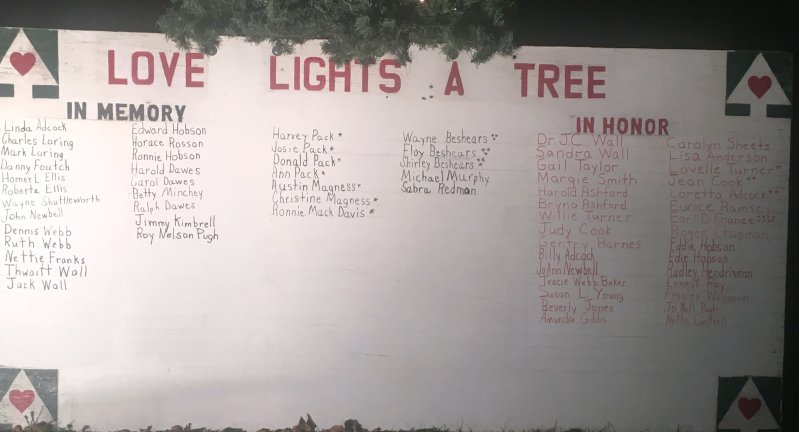 LOVE LIGHTS A TREE
IN MEMORY
Linda Adcock
Charles Loring
Mark Loring
Danny Foutch
Homer L Ellis
Roberta Ellis
Wayne Shuttleworth
John Newbell
Dennis Webb
Ruth Webb
Nettie Franks
Thwaitt Wall
Jack Wall
Edward Hobson
Horace Rosson
Ronnie Hobson
Harold Dawes
Carol Dawes
Betty Minchey
Ralph Dawes
Jimmy Kimbrell
Roy Nelson Pugh
Harvey Pack*
Josie Pack*
Donald Pack*
Ann Pack*
Austin Magness*
Christine Magness*
Ronnie Mack Davis*
Wayne Beshears**
Floy Beshears**
Shirley Beshears**
Michael Murphy
Sabra Redman
IN HONOR
Dr. J.C. Wall
Sandra Wall
Gail Taylor
Margie Smith
Harold Ashford
Bryna Ashford
Willie Turner
Judy Cook
Gentry Barnes
Billy Adcock
JoAnn Newbell
Tracie Webb Baker
Susan L Young
Beverly Jones
Amanda Gibbs
Carolyn Sheets
Lisa Anderson
Lavelle Turner
Jean Cook**
Loretta Adcock**
Eunice Ramsey
Earl D. France
Roger Chapman
Eddie Hobson
Edie Hobson
Hadley Hendrixson
Ernest Ray
Frances Waggoner
Jo Nell Pugh
Netta Cantrell